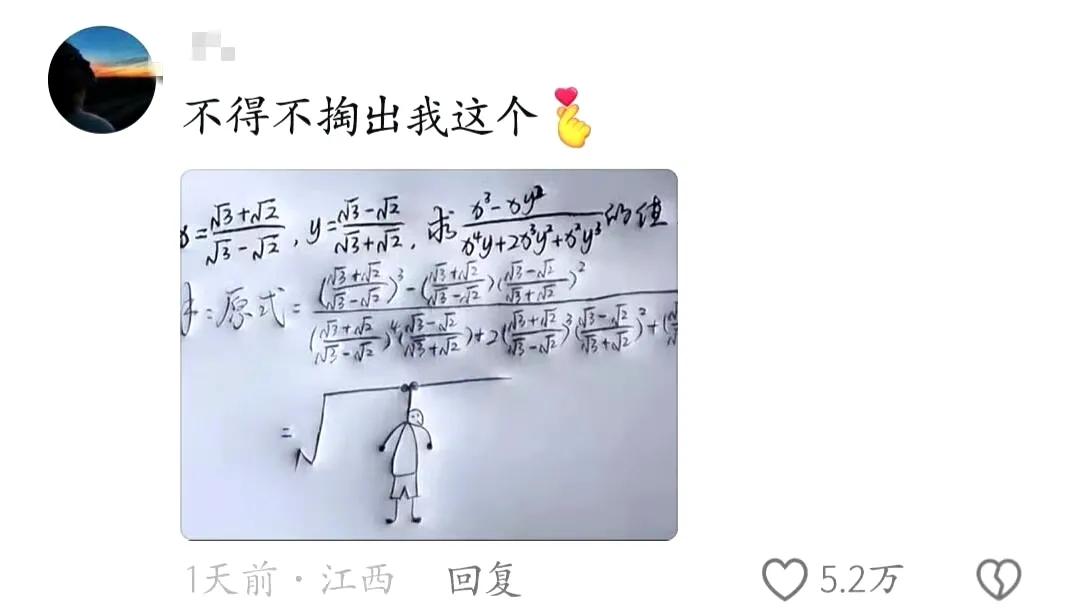 不得不掏出我这个
x=(√3+√2)/(√3-√2), y=(√3-√2)/(√3+√2), 求 (x³-xy²)/(x⁴y+2x³y²+x²y³) 的值
:原式=(((√3+√2)/(√3-√2))³-((√3+√2)/(√3-√2))((√3-√2)/(√3+√2))²)/(((√3+√2)/(√3-√2))⁴((√3-√2)/(√3+√2))+2((√3+√2)/(√3-√2))³((√3-√2)/(√3+√2))²+(
=√
1天前·江西 回复 5.2万